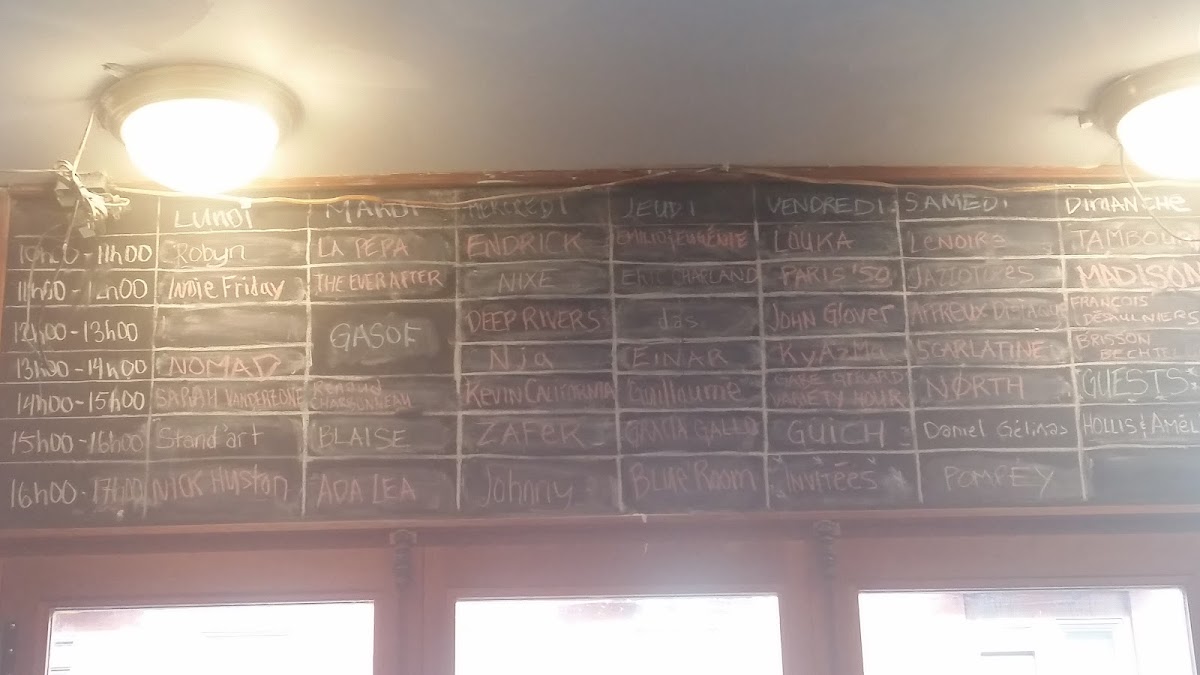 LUNDI MARDI MERCREDI JEUDI VENDREDI SAMEDI DIMANCHE
10h00-11h00 Robyn LA PEPA ENDRICK EMILIO & EUGÉNIE LOUKA LENOIRE TAMBOU
11h00-12h00 Indie Friday THE EVER AFTER NIXE ERIC CHARLAND PARIS '50 JAZZOTOXES MADISON
12h00-13h00 GASOF DEEP RIVERS das John Glover AFFREUX FRANÇOIS DESAULNIERS
13h00-14h00 NOMAD Nja EINAR KyAzMa SCARLATINE BRISSON BECHTEL
14h00-15h00 SARAH VANDERZONE Renaud CHARBONNEAU KEVIN CALIFORNIA Guillaume VARIETY HOUR NØRTH GUESTS
15h00-16h00 Stand'art BLAISE ZAFER GRACIA GALLO GÜICH Daniel Gélinas HOLLIS & AMÉL
16h00-17h00 NICK HUSTON ADA LEA Johnny Blue Room INVITÉES POMPÉY